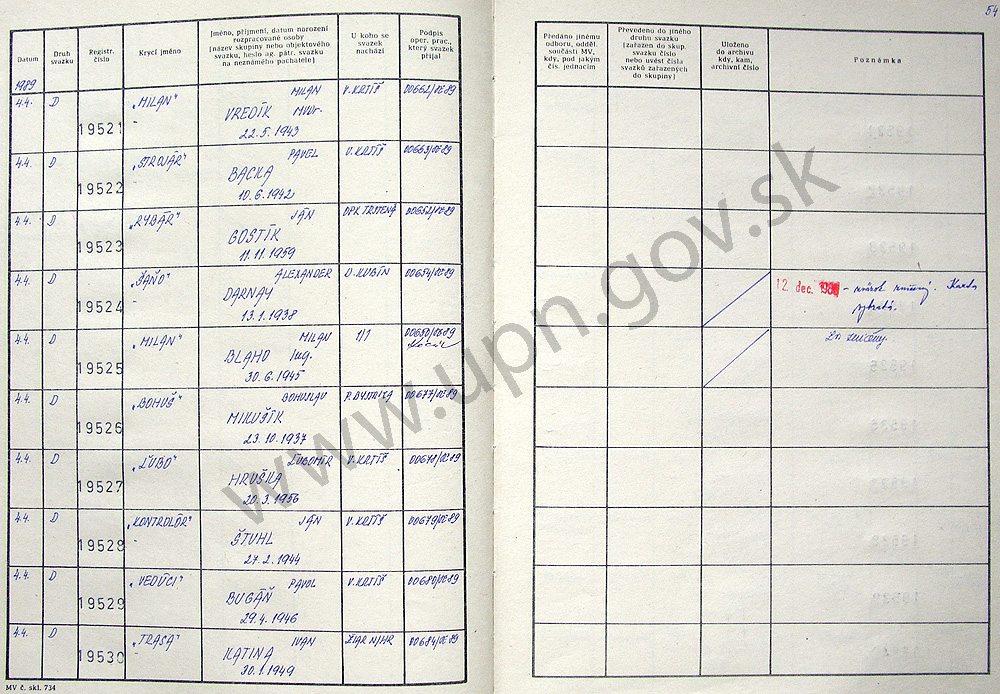 54
Datum
Druh svazku
Registr. číslo
Krycí jméno
Jméno, příjmení, datum narození
rozpracované osoby
(název skupiny nebo objektového
svazku, heslo ag. pátr. svazku
na neznámého pachatele)
U koho se svazek nachází
Podpis oper. prac., který svazek přijal
Předáno jinému
odboru, odděl.
součásti MV,
kdy, pod jakým
čís. jednacím
Převedeno do jiného
druhu svazku
(zařazen do skup.
svazku číslo
nebo uvést čísla
svazků zařazených
do skupiny)
Uloženo
do archivu
kdy, kam,
archivní číslo
Poznámka
1989
4.4. D 19521 „MILAN" MILAN V. KRTÍŠ 00662/02-89
VREDÍK MVDr.
22.5.1943
4.4. D 19522 „STROJÁR" PAVEL V. KRTÍŠ 00663/02-89
BACKA
10.6.1942
4.4. D 19523 „RYBÁR" JÁN OPK TRSTENÁ 00652/02-89
GOSTÍK
11.11.1959
4.4. D 19524 „ŠAŇO" ALEXANDER D. KUBÍN 00654/02-89
DARNAY
13.1.1938
12. dec. 1989 -
4.4. D 19525 „MILAN" MILAN 1/1
BLAHO Ing.
30.6.1945
4.4. D 19526 „BOHUŠ" BOHUSLAV 00677/02-89
MIKUŠÍK
23.10.1937
4.4. D 19527 „ĽUBO" ĽUBOMÍR V. KRTÍŠ 00678/02-89
HRUŠKA
20.3.1956
4.4. D 19528 „KONTROLÓR" JÁN V. KRTÍŠ 00679/02-89
ŠTUHL
27.2.1944
4.4. D 19529 „VEDÚCI" PAVOL V. KRTÍŠ 00680/02-89
BUGÁŇ
29.4.1946
4.4. D 19530 „TRASA" IVAN ŽIAR N/HR 00684/02-89
KATINA
30.1.1949
MV č. skl. 734
www.upn.gov.sk